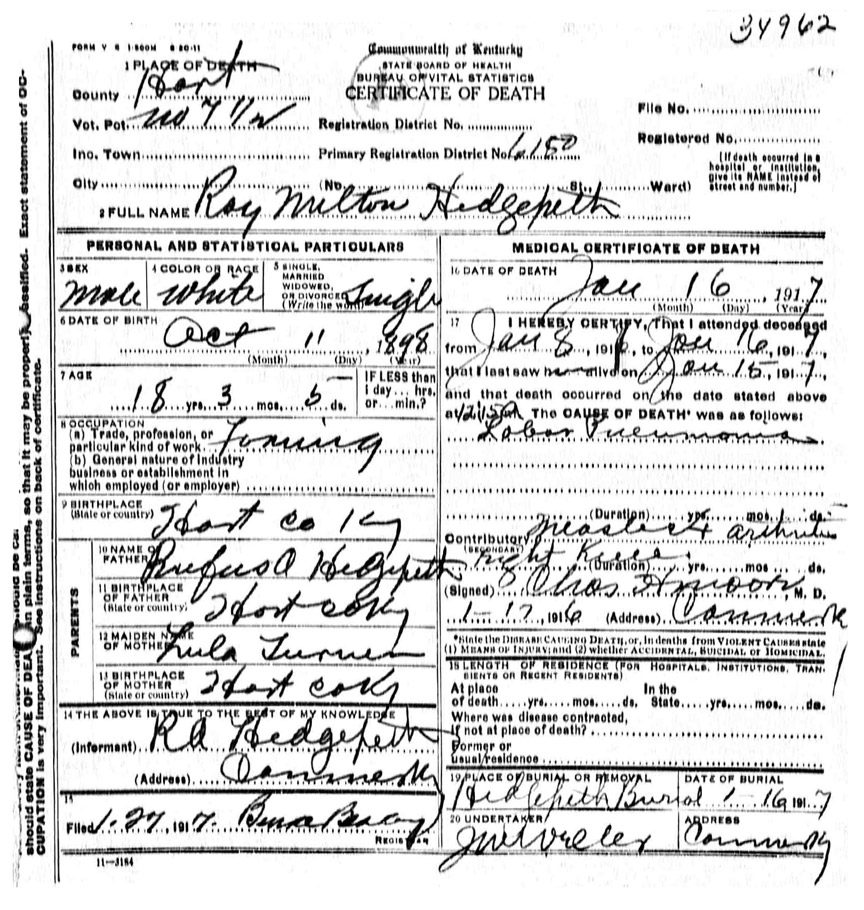 34962
FORM V S 1-500M 8-20-11
Commonwealth of Kentucky
STATE BOARD OF HEALTH
BUREAU OF VITAL STATISTICS
CERTIFICATE OF DEATH
1 PLACE OF DEATH
County Hart
Vot. Pct. No 7
Inc. Town
City
Registration District No.
Primary Registration District No. 6150
(No. St. Ward)
File No.
Registered No.
[If death occurred in a hospital or institution, give NAME instead of street and number.]
2 FULL NAME Roy Milton Hedgepeth
PERSONAL AND STATISTICAL PARTICULARS
3 SEX Male
4 COLOR OR RACE White
5 SINGLE, MARRIED WIDOWED, OR DIVORCED (Write the word) Single
6 DATE OF BIRTH Oct 11, 1898
(Month) (Day) (Year)
7 AGE 18 yrs. 3 mos. 5 ds.
IF LESS than 1 day hrs. or min.?
8 OCCUPATION
(a) Trade, profession, or particular kind of work Farming
(b) General nature of Industry business or establishment in which employed (or employer)
9 BIRTHPLACE (State or country) Hart Co Ky
PARENTS
10 NAME OF FATHER Rufus A Hedgepeth
11 BIRTHPLACE OF FATHER (State or country) Hart Co Ky
12 MAIDEN NAME OF MOTHER Lula Turner
13 BIRTHPLACE OF MOTHER (State or country) Hart Co Ky
14 THE ABOVE IS TRUE TO THE BEST OF MY KNOWLEDGE
(Informant) R A Hedgepeth
(Address) Canmer Ky
15
Filed 1-27, 1917.
REGISTRAR
11-3184
MEDICAL CERTIFICATE OF DEATH
16 DATE OF DEATH Jan 16, 1917
(Month) (Day) (Year)
17 I HEREBY CERTIFY, That I attended deceased
from Jan 8 191, to Jan 16, 1917
that I last saw h alive on Jan 15, 1917,
and that death occurred on the date stated above
at The CAUSE OF DEATH* was as follows:
Lobar Pneumonia
(Duration) yrs. mos. ds.
Contributory Measles & arthritis
(SECONDARY) right Knee
(Duration) yrs. mos. ds.
(Signed) Chas H Moore, M. D.
1-17, 1916 (Address) Canmer Ky
*State the DISEASE CAUSING DEATH, or, in deaths from VIOLENT CAUSES state
(1) MEANS OF INJURY; and (2) whether ACCIDENTAL, SUICIDAL or HOMICIDAL.
18 LENGTH OF RESIDENCE (FOR HOSPITALS, INSTITUTIONS, TRANSIENTS OR RECENT RESIDENTS)
At place of death yrs. mos. ds. In the State yrs. mos. ds.
Where was disease contracted, if not at place of death?
Former or usual residence
19 PLACE OF BURIAL OR REMOVAL Hedgepeth Burial
DATE OF BURIAL 1-16 1917
20 UNDERTAKER
ADDRESS Canmer Ky
should state CAUSE OF DEATH in plain terms, so that it may be properly classified. Exact statement of OC-
CUPATION is very important. See instructions on back of certificate.